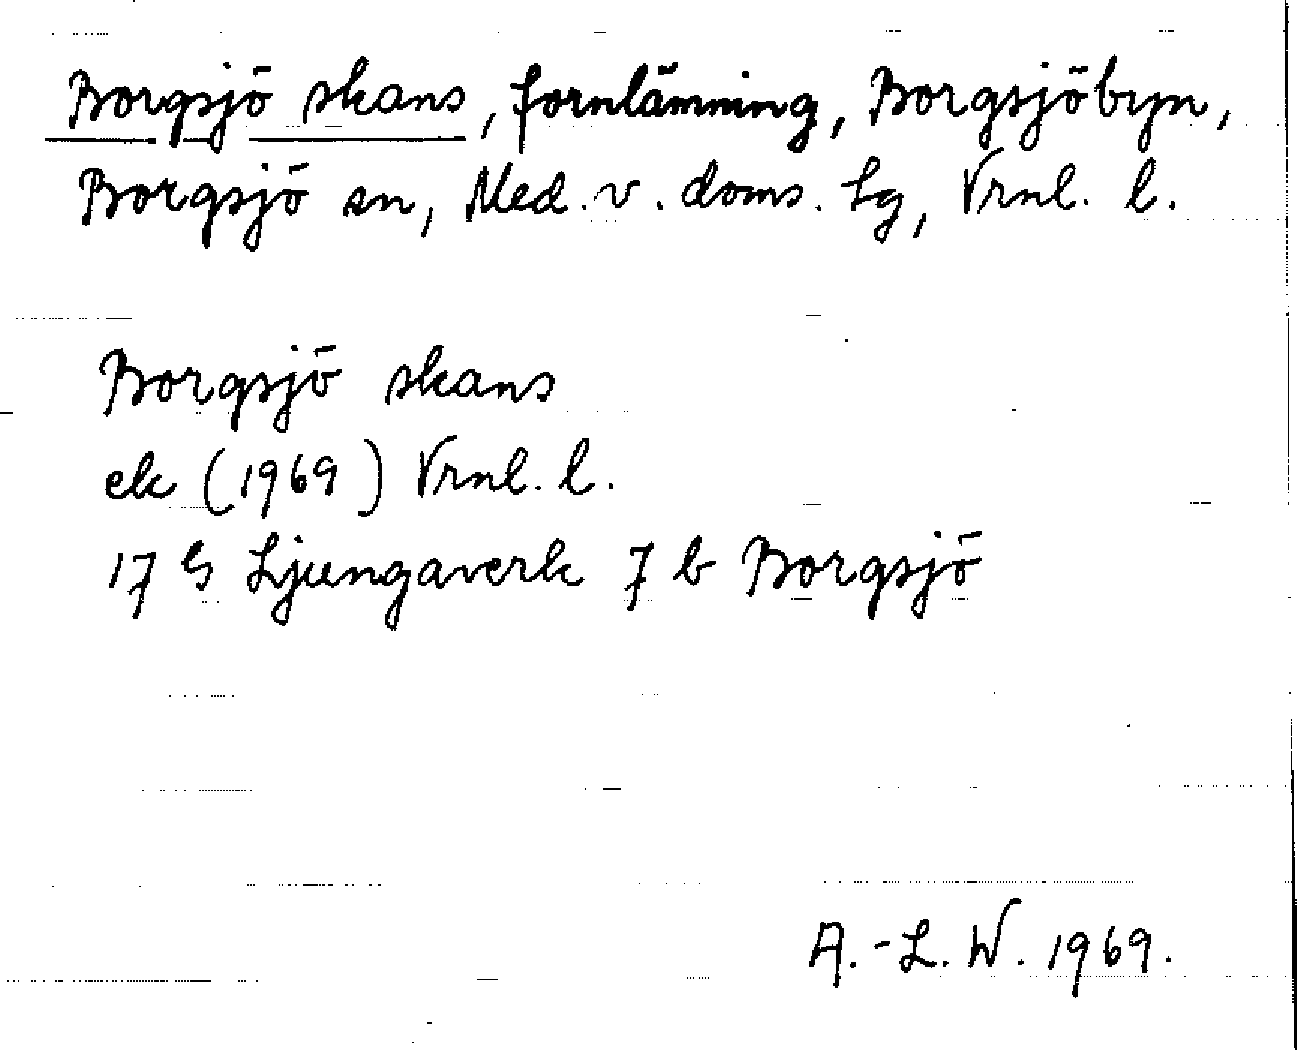 Borgsjö skans, fornlämning, Borgsjöbyn,
Borgsjö sn, Med. v. doms. tg, Vrnl. l.
Borgsjö skans
ek (1969) Vrnl. l.
17 G Ljungaverk 7 b Borgsjö
A.-L. W. 1969.